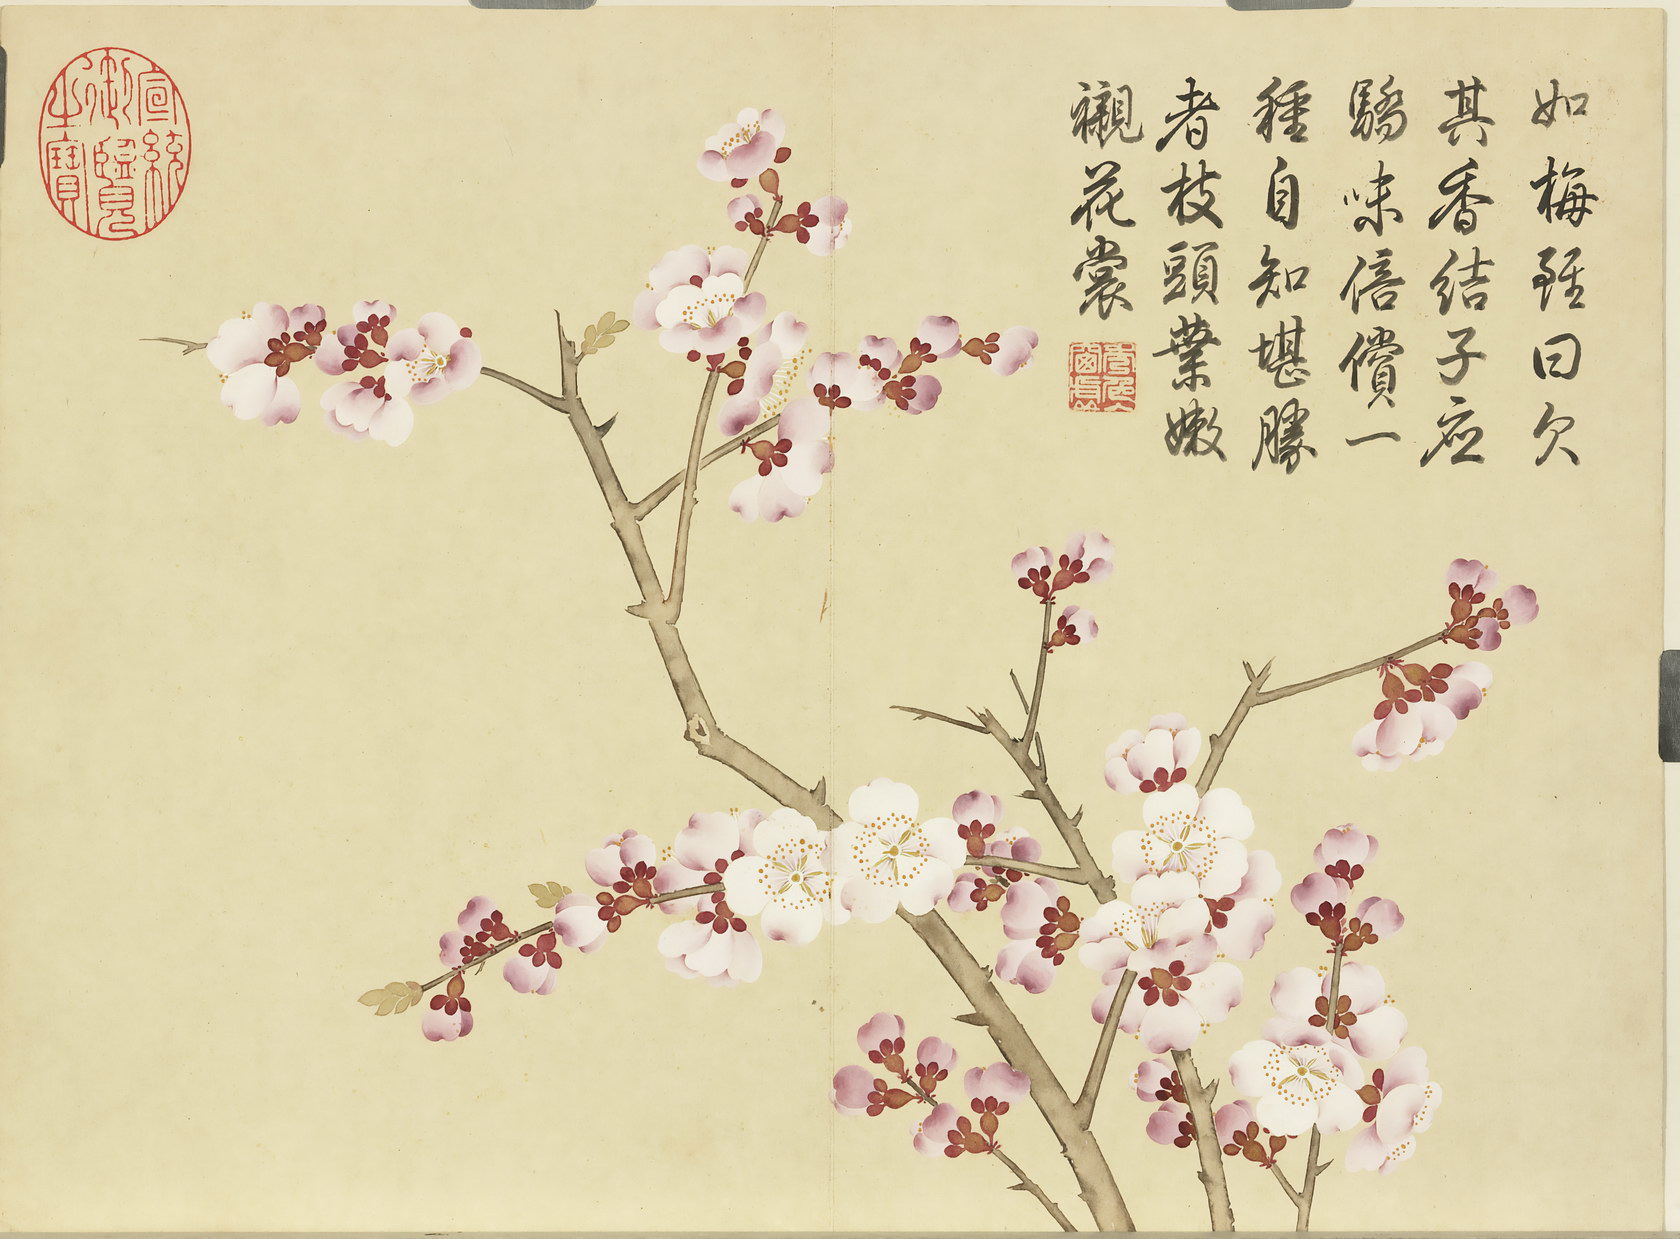 如梅雖曰欠
其香結子应
驕味倍償一
種自知堪勝
者枝頭葉嫩
襯花裳
宣統
御覽
之寶